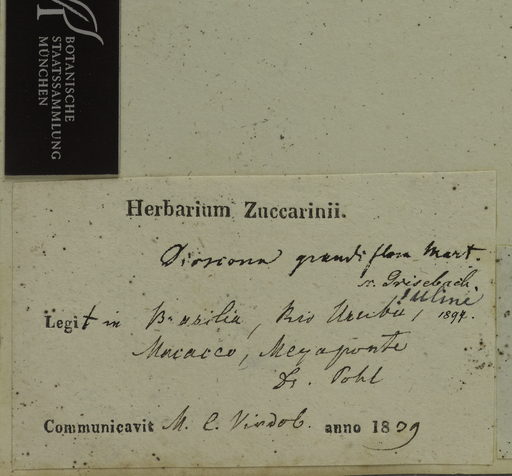 BOTANISCHE
STAATSSAMMLUNG
MÜNCHEN
Herbarium Zuccarinii.
Dioscorea grandiflora Mart.
v. Grisebach
Uline
Legit in Brasilia, Rio Urubu, 1897.
Macacco, Meyaponte
Dr. Pohl
Communicavit M. C. Vindob. anno 1839